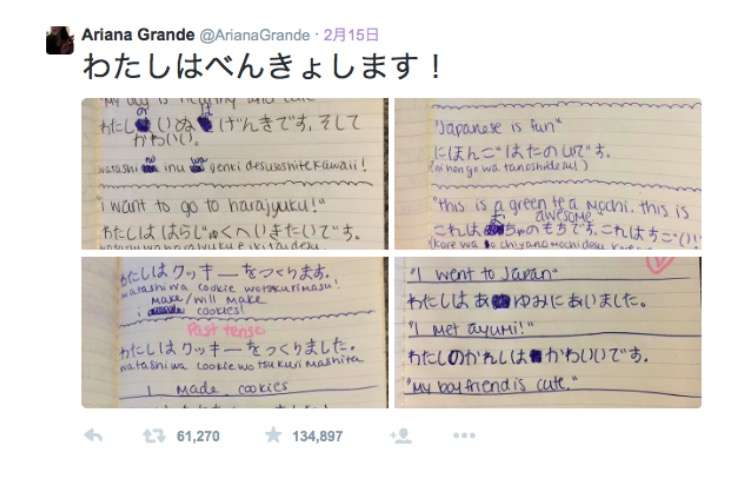 Ariana Grande @ArianaGrande · 2月15日
わたしはべんきょします！
"My dog is healthy and cute
の は
わたし いぬ げんきです。そして
かわいい。
no wa
watashi inu genki desu soshite kawaii!
"i want to go to harajyuku!"
わたしは はらじゅくへいきたいです。
"Japanese is fun"
にほんご は たのしいです。
(ni hon go wa tanoshi desu!)
"this is a green tea mochi. this is
awesome
これは ちゃのもちです。これは
(kore wa chiyano mochi desu
わたしは クッキーをつくります。
watashi wa cookie wo tsukurimasu!
make/will make
i cookies!
Past tense
わたしは クッキーをつくりました。
watashi wa cookie wo tsukuri mashita
I made cookies
"I went to Japan"
わたしは あ ゆみにあいました。
"I met ayumi!"
わたしのかれしは かわいいです。
"my boyfriend is cute."
61,270 134,897